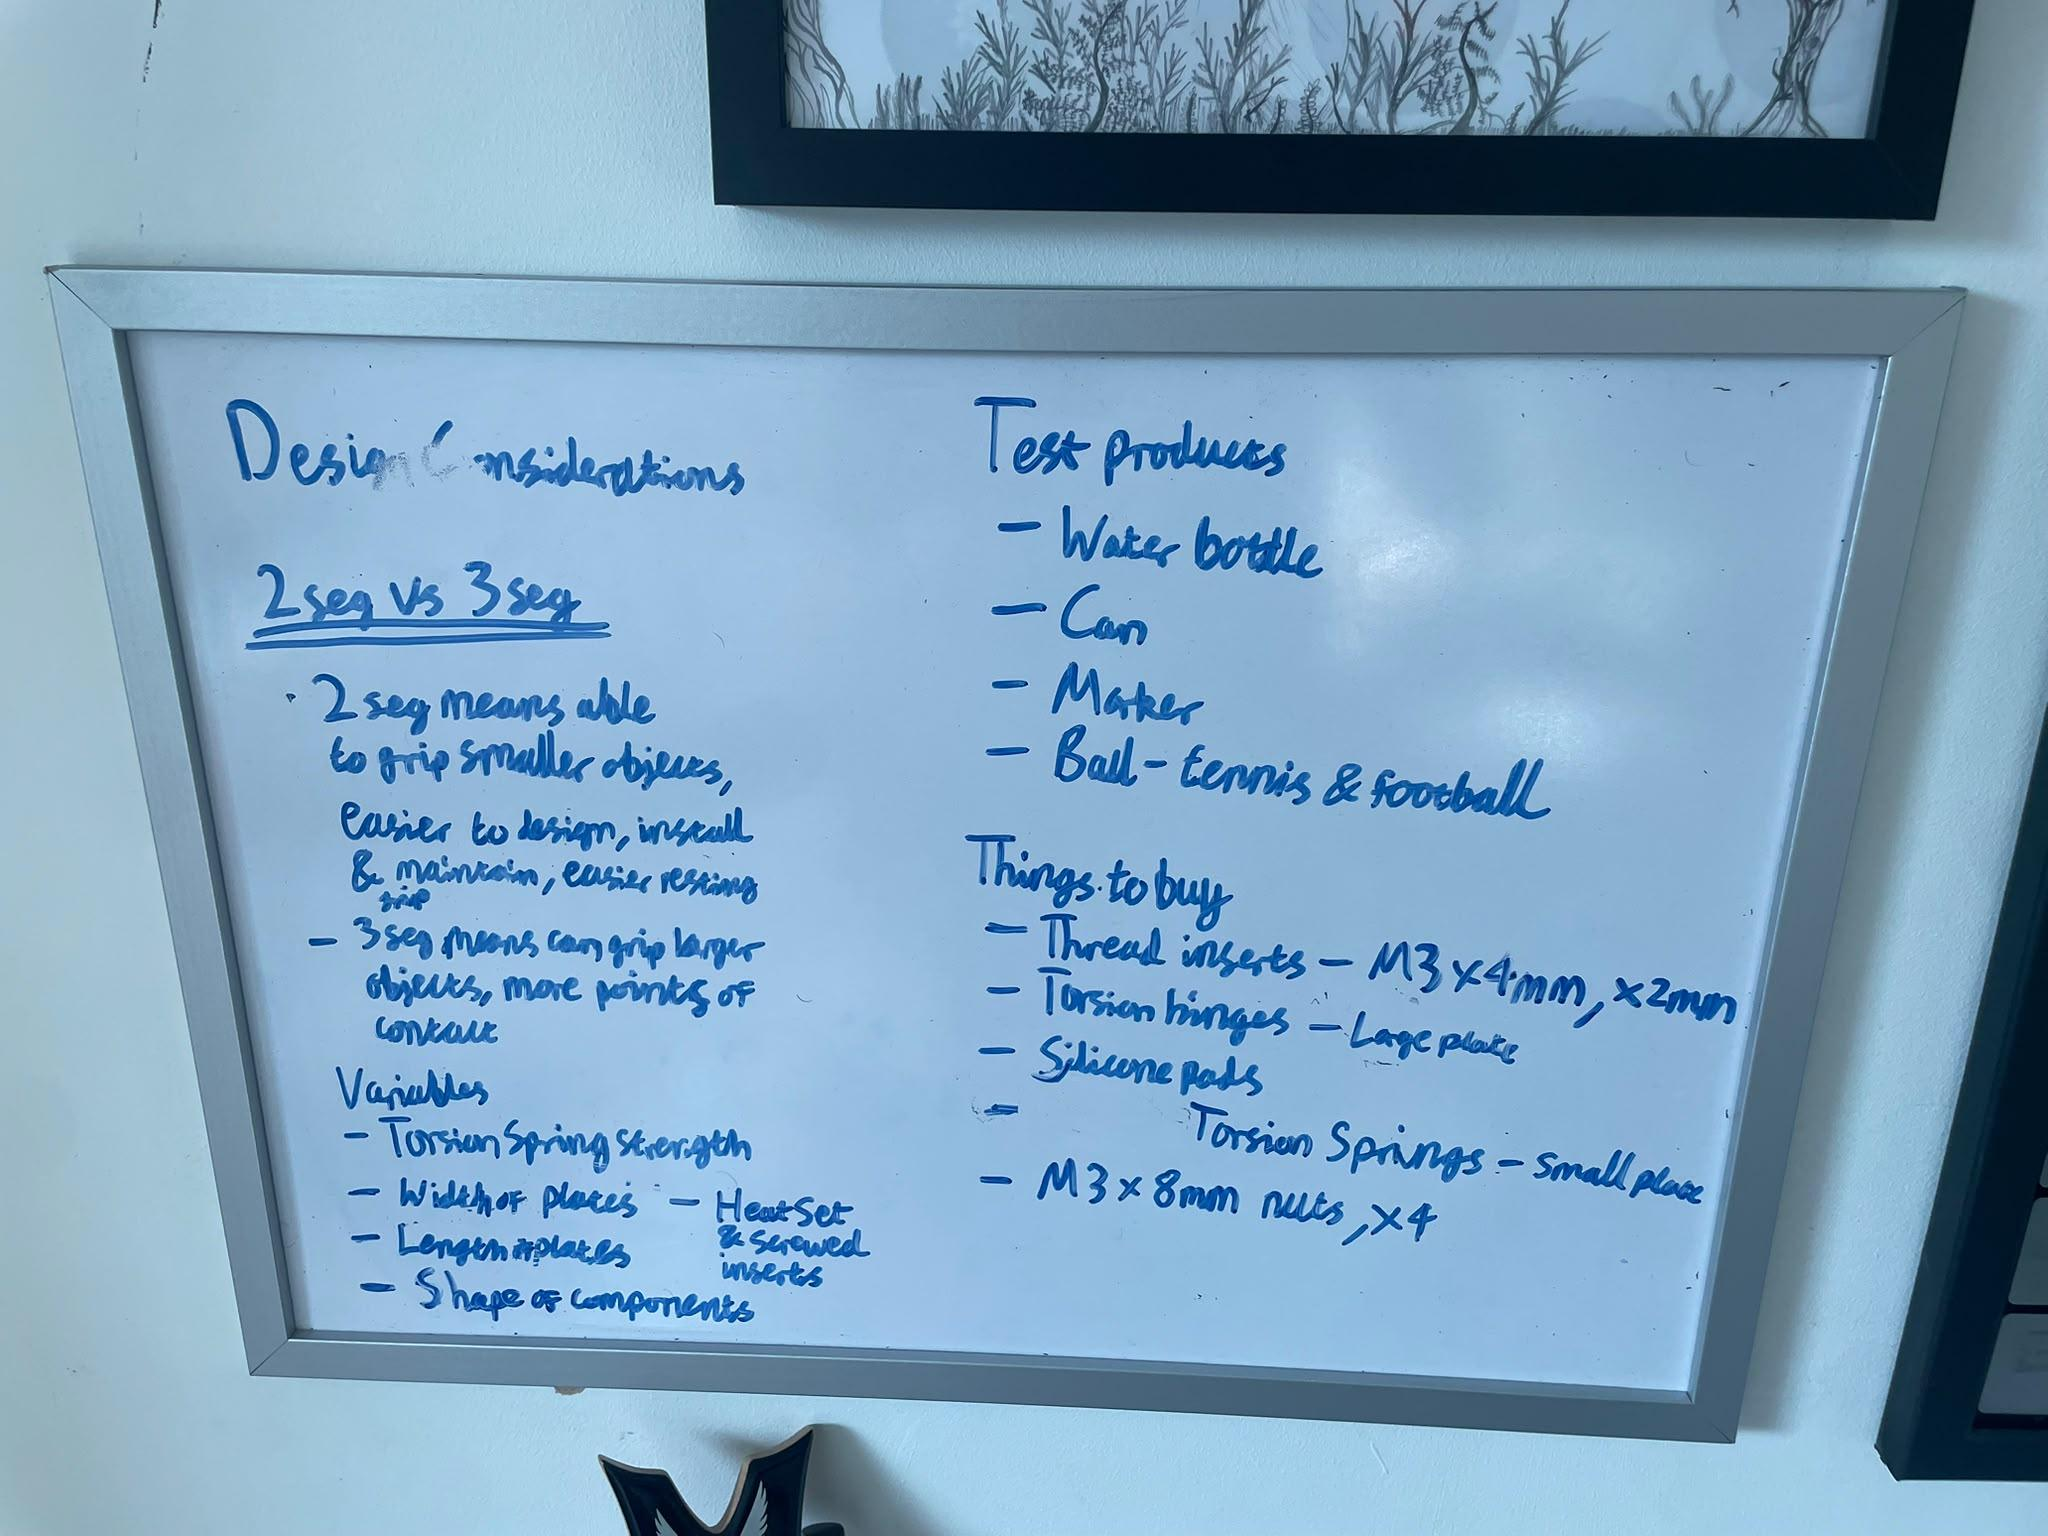 Design Considerations
2 seg vs 3 seg
· 2 seg means able
to grip smaller objects,
easier to design, install
& maintain, easier resting
grip
- 3 seg means can grip larger
objects, more points of
contact
Variables
- Torsion Spring strength
- Width of plates
- Length of plates
- Shape of components
- Heat Set
& screwed
inserts
Test products
- Water bottle
- Can
- Marker
- Ball - tennis & football
Things to buy
- Thread inserts - M3 x 4mm, x2mm
- Torsion hinges - Large plate
- Silicone pads
- Torsion Springs - small plate
- M3 x 8mm nuts, x4